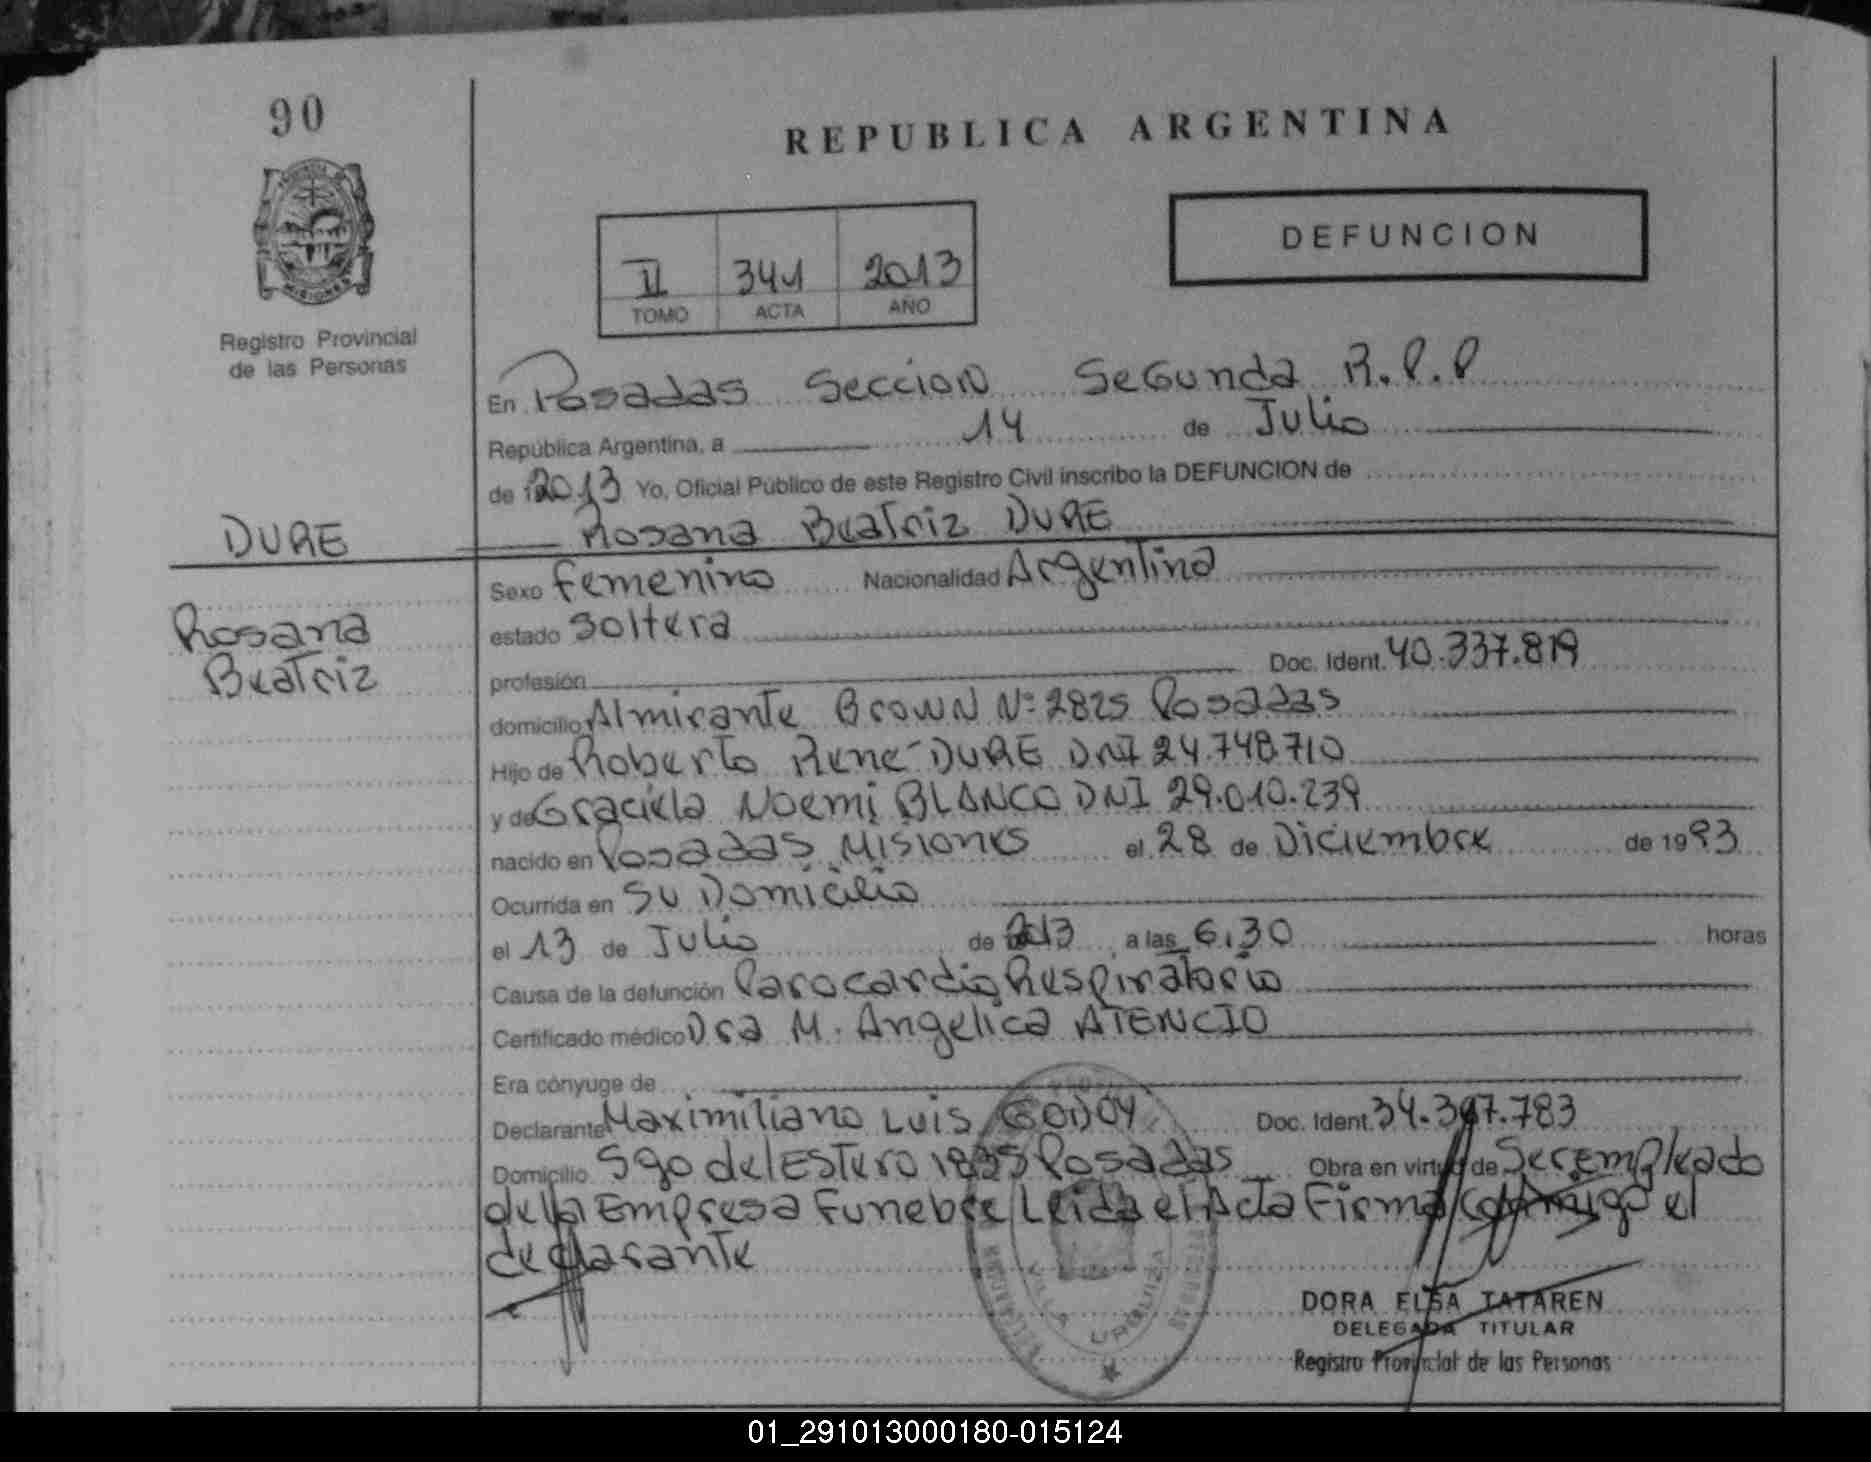 90
REPUBLICA ARGENTINA
DEFUNCION
II 341 2013
TOMO ACTA AÑO
Registro Provincial
de las Personas
En Posadas Seccion Segunda R.P.P
República Argentina, a 14 de Julio
de 2013 Yo, Oficial Público de este Registro Civil inscribo la DEFUNCION de
DURE
Rosana Beatriz DURE
Sexo Femenino Nacionalidad Argentina
Rosana
Beatriz
estado Soltera
profesión Doc. Ident. 40.337.819
domicilio Almirante Brown Nº 2825 Posadas
Hijo de Roberto Rene DURE DNI 24.748.710
y de Graciela Noemi BLANCO DNI 29.010.239
nacido en Posadas Misiones el 28 de Diciembre de 1993
Ocurrida en Su Domicilio
el 13 de Julio de 2013 a las 6,30 horas
Causa de la defunción Parocardio Respiratorio
Certificado médico Dra M. Angelica ATENCIO
Era cónyuge de
Declarante Maximiliano Luis GODOY Doc. Ident. 34.367.783
Domicilio Sgo del Estero 1835 Posadas Obra en virtud de Ser Empleado
de la Empresa Funebre Leida el Acta Firma conmigo el
declarante
VILLA URQUIZA
DORA ELSA TATAREN
DELEGADA TITULAR
Registro Provincial de las Personas
01_291013000180-015124